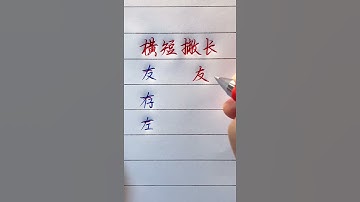 横短撇长
友 友
存
左